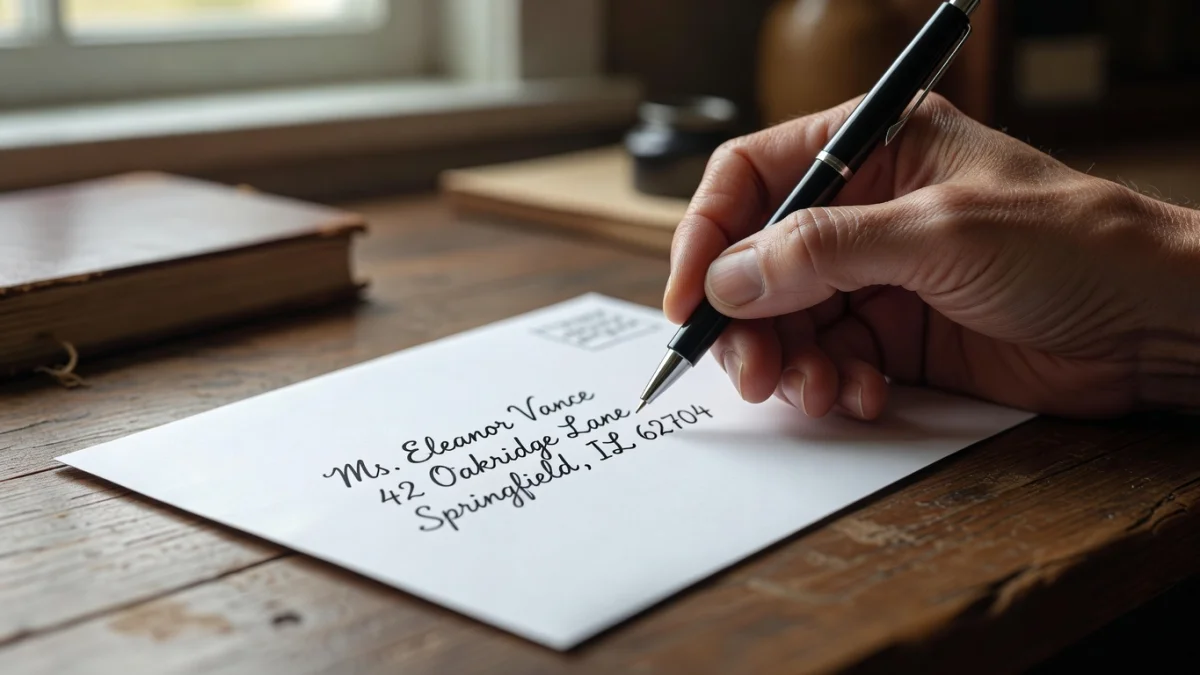 Ms. Eleanor Vance
42 Oakridge Lane
Springfield, IL 62704